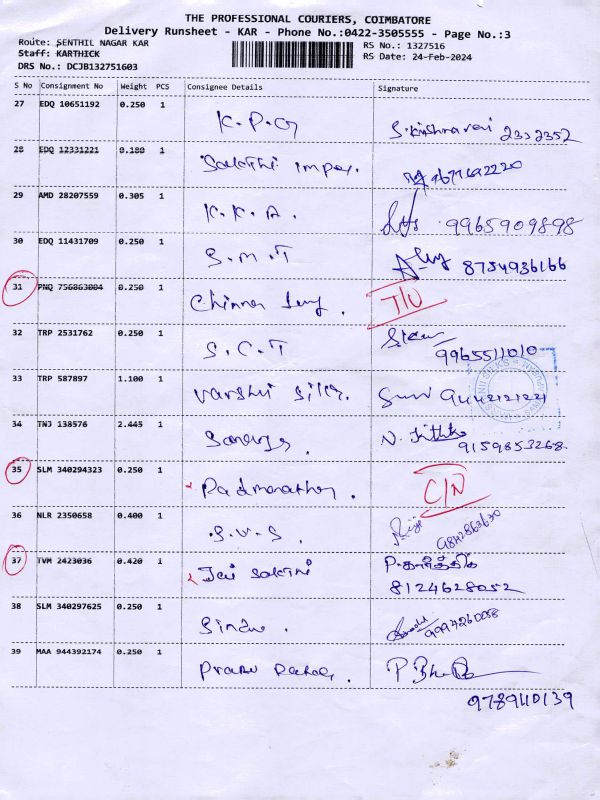 THE PROFESSIONAL COURIERS, COIMBATORE
Delivery Runsheet - KAR - Phone No.:0422-3505555 - Page No.:3
Route: SENTHIL NAGAR KAR RS No.: 1327516
Staff: KARTHICK RS Date: 24-Feb-2024
DRS No.: DCJB132751603
S No Consignment No Weight PCS Consignee Details Signature
27 EDQ 10651192 0.250 1 K.P.G 2332352
28 EDQ 12331221 0.180 1 Sakthi impex.
29 AMD 28207559 0.305 1 K.K.A. 9965909898
30 EDQ 11431709 0.250 1 S.M.T 8754936166
31 PNQ 756863004 0.250 1 Chinna T/U
32 TRP 2531762 0.250 1 S.C.T 9965511010
33 TRP 587897 1.100 1 Varshi Silks.
34 TNJ 138576 2.445 1 9159853268
35 SLM 340294323 0.250 1 C/N
36 NLR 2350658 0.400 1 S.V.S. 9842863630
37 TVM 2423036 0.420 1 Jai Sakthi P.கார்த்திக்
8124628052
38 SLM 340297625 0.250 1 9994260058
39 MAA 944392174 0.250 1
9789110139